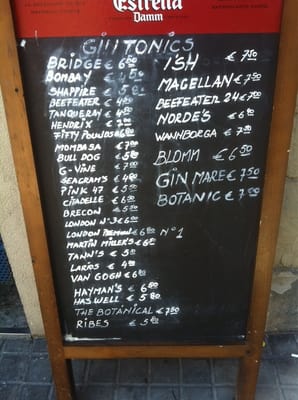 Estrella
Damm
GIN TONICS
BRIDGE € 6 80
BOMBAY € 4 50
SHAPPIRE € 5 80
BEEFEATER € 4 80
TANQUERAY € 4 80
HENDRIX € 7 00
FIFTY POUNDS € 6 80
MOMBASA € 7 00
BULL DOG € 5 80
G-VINE € 7 00
SEAGRAM'S € 4 80
PINK 47 € 5 00
CITADELLE € 6 00
BRECON € 5 50
LONDON N°3 € 6 00
LONDON PREMIUM € 6 80
MARTIN MILLER'S € 6 00
TANN'S € 5 00
LARIOS € 4 00
VAN GOGH € 6 80
HAYMAN'S € 6 80
HASWELL € 5 80
THE BOTANICAL € 7 50
RIBES € 5 00
ISH € 7 50
MAGELLAN € 7 50
BEEFEATER 24 € 7 50
NORDE'S € 6 80
WANNBORGA € 7 50
BLOMN € 6 50
GIN MARE € 7 50
BOTANIC € 7 50
N° 1